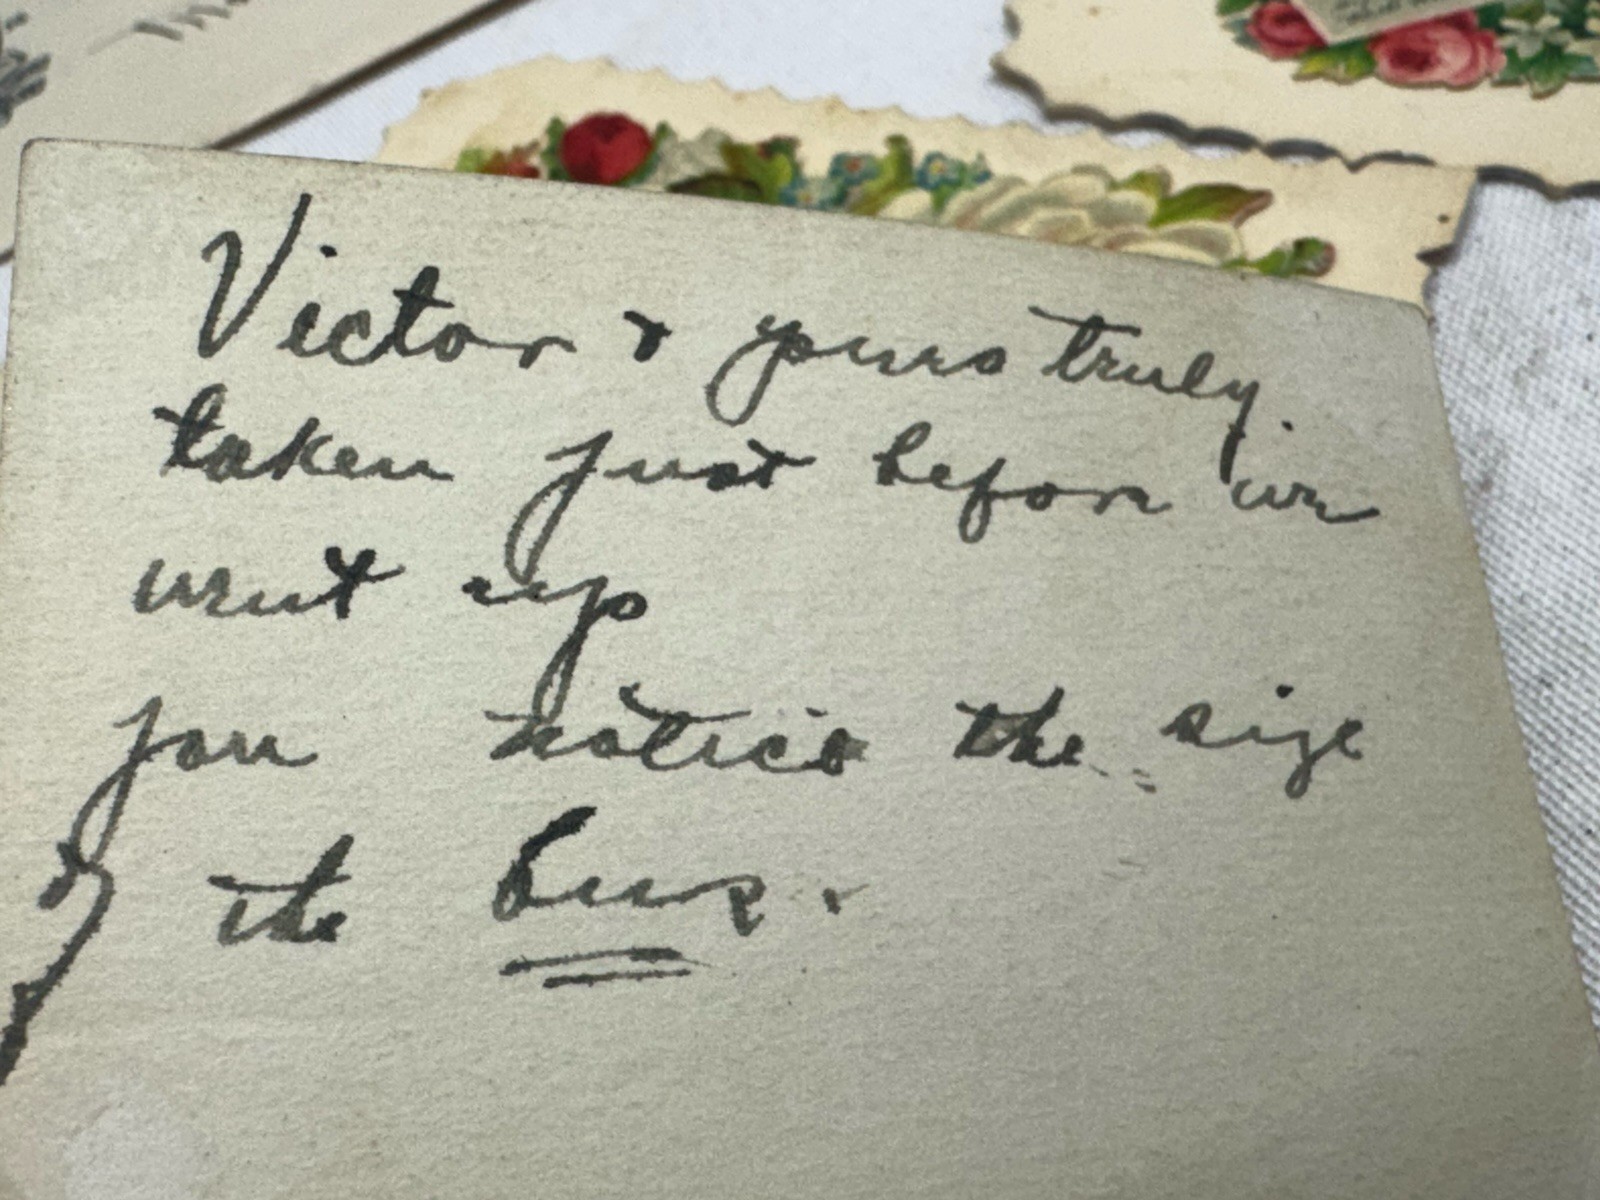 Victor & yours truly
taken just before we
went up
you notice the size
of the bus.